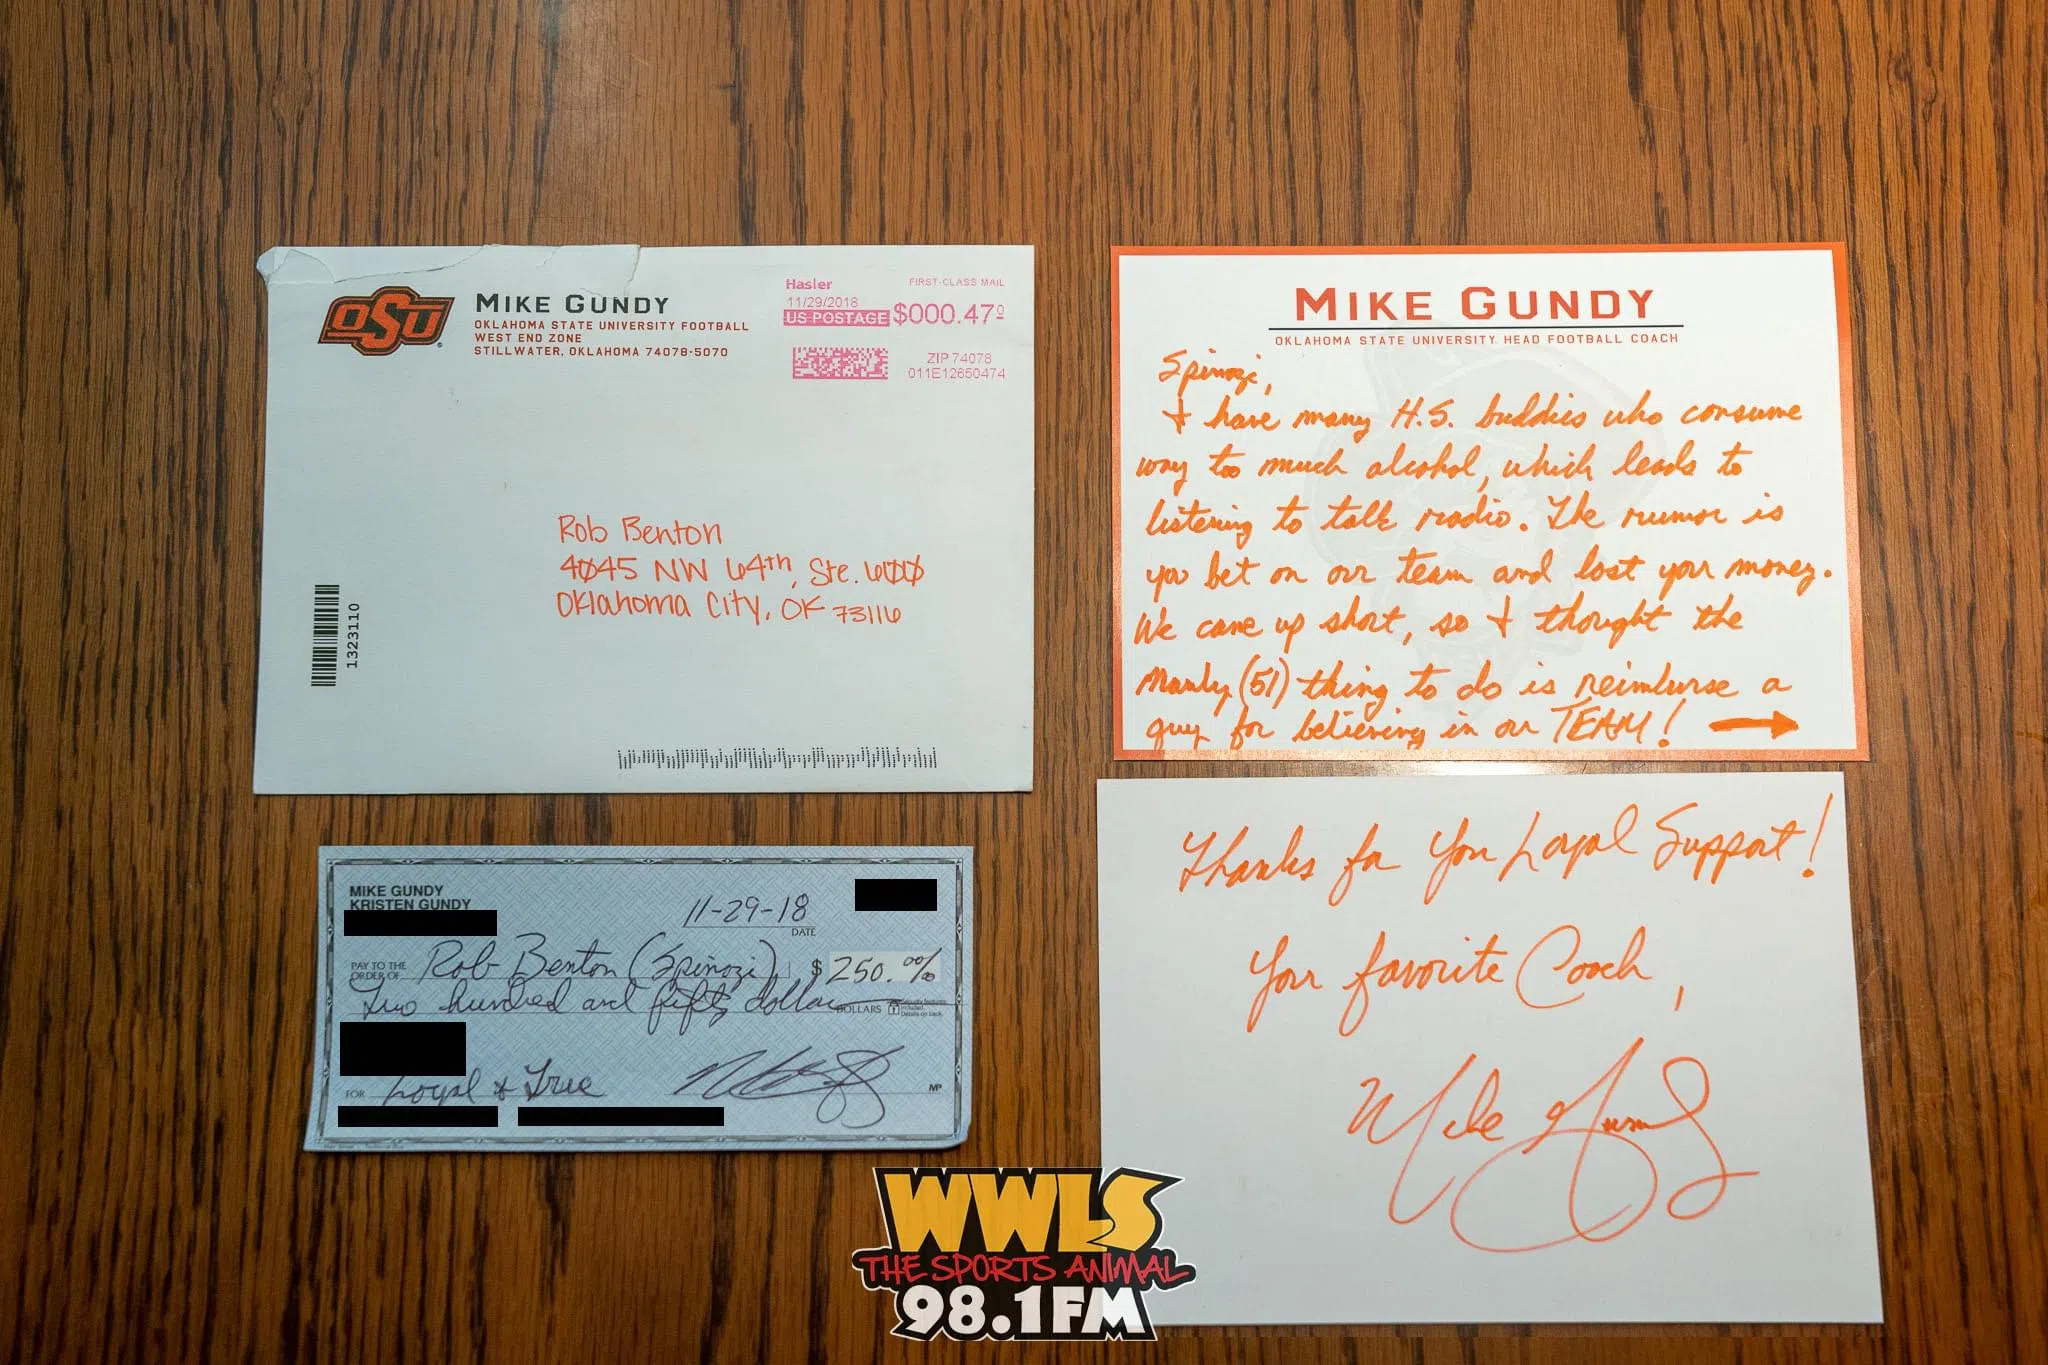 OSU
MIKE GUNDY
OKLAHOMA STATE UNIVERSITY FOOTBALL
WEST END ZONE
STILLWATER, OKLAHOMA 74078-5070
Hasler
FIRST-CLASS MAIL
11/29/2018
US POSTAGE $000.47⁰
ZIP 74078
011E12650474
Rob Benton
4045 NW 64th, Ste. 600
Oklahoma City, OK 73116
1323110
MIKE GUNDY
OKLAHOMA STATE UNIVERSITY HEAD FOOTBALL COACH
Spinozi,
I have many H.S. buddies who consume
way too much alcohol, which leads to
listening to talk radio. The rumor is
you bet on our team and lost your money.
We came up short, so I thought the
Manly (51) thing to do is reimburse a
guy for believing in our TEAM! →
MIKE GUNDY
KRISTEN GUNDY
11-29-18
DATE
PAY TO THE
ORDER OF Rob Benton (Spinozi) $ 250.00/00
Two hundred and fifty dollars DOLLARS
Security features
included.
Details on back.
FOR Loyal & True
MP
Thanks for Your Loyal Support!
Your favorite Coach,
Mike Gundy
WWLS
THE SPORTS ANIMAL
98.1FM